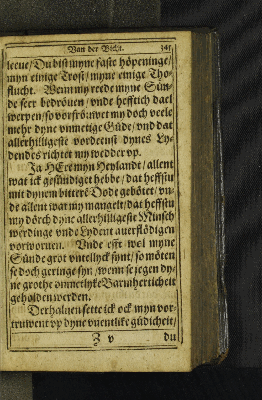 Van der Bicht. 345
leeue / Du bist myne faste höpeninge /
myn einige Trost / myne einige Tho-
flucht. Wenn my rede myne Sün-
de seer bedröuen / vnde hefftich dael
werpen / so vorfröuwet my doch veele
mehr dyne vnmetige Güde / vnd dat
allerhilligeste vordeenst dynes Ly-
dendes richtet my wedder vp.
Ja HEre myn Heylandt / allent
wat ick gesündiget hebbe / dat heffstu
mit dynem bitterē Dode geböret / vñ
de allent war my mangelt / dat heffstu
my dörch dyne allerhilligeste Minsch
werdinge vnde Lydent auerflödigen
vorworuen. Vnde efft wel myne
Sünde grot vnde llyck synt / so möten
se doch geringe syn / wenn se jegen dy-
ne grothe onmetlyke Barmherticheit
geholden werden.
Derhaluen sette ick ock myn vor-
truwent vp dyne vuentlike güdicheit /
Z v du